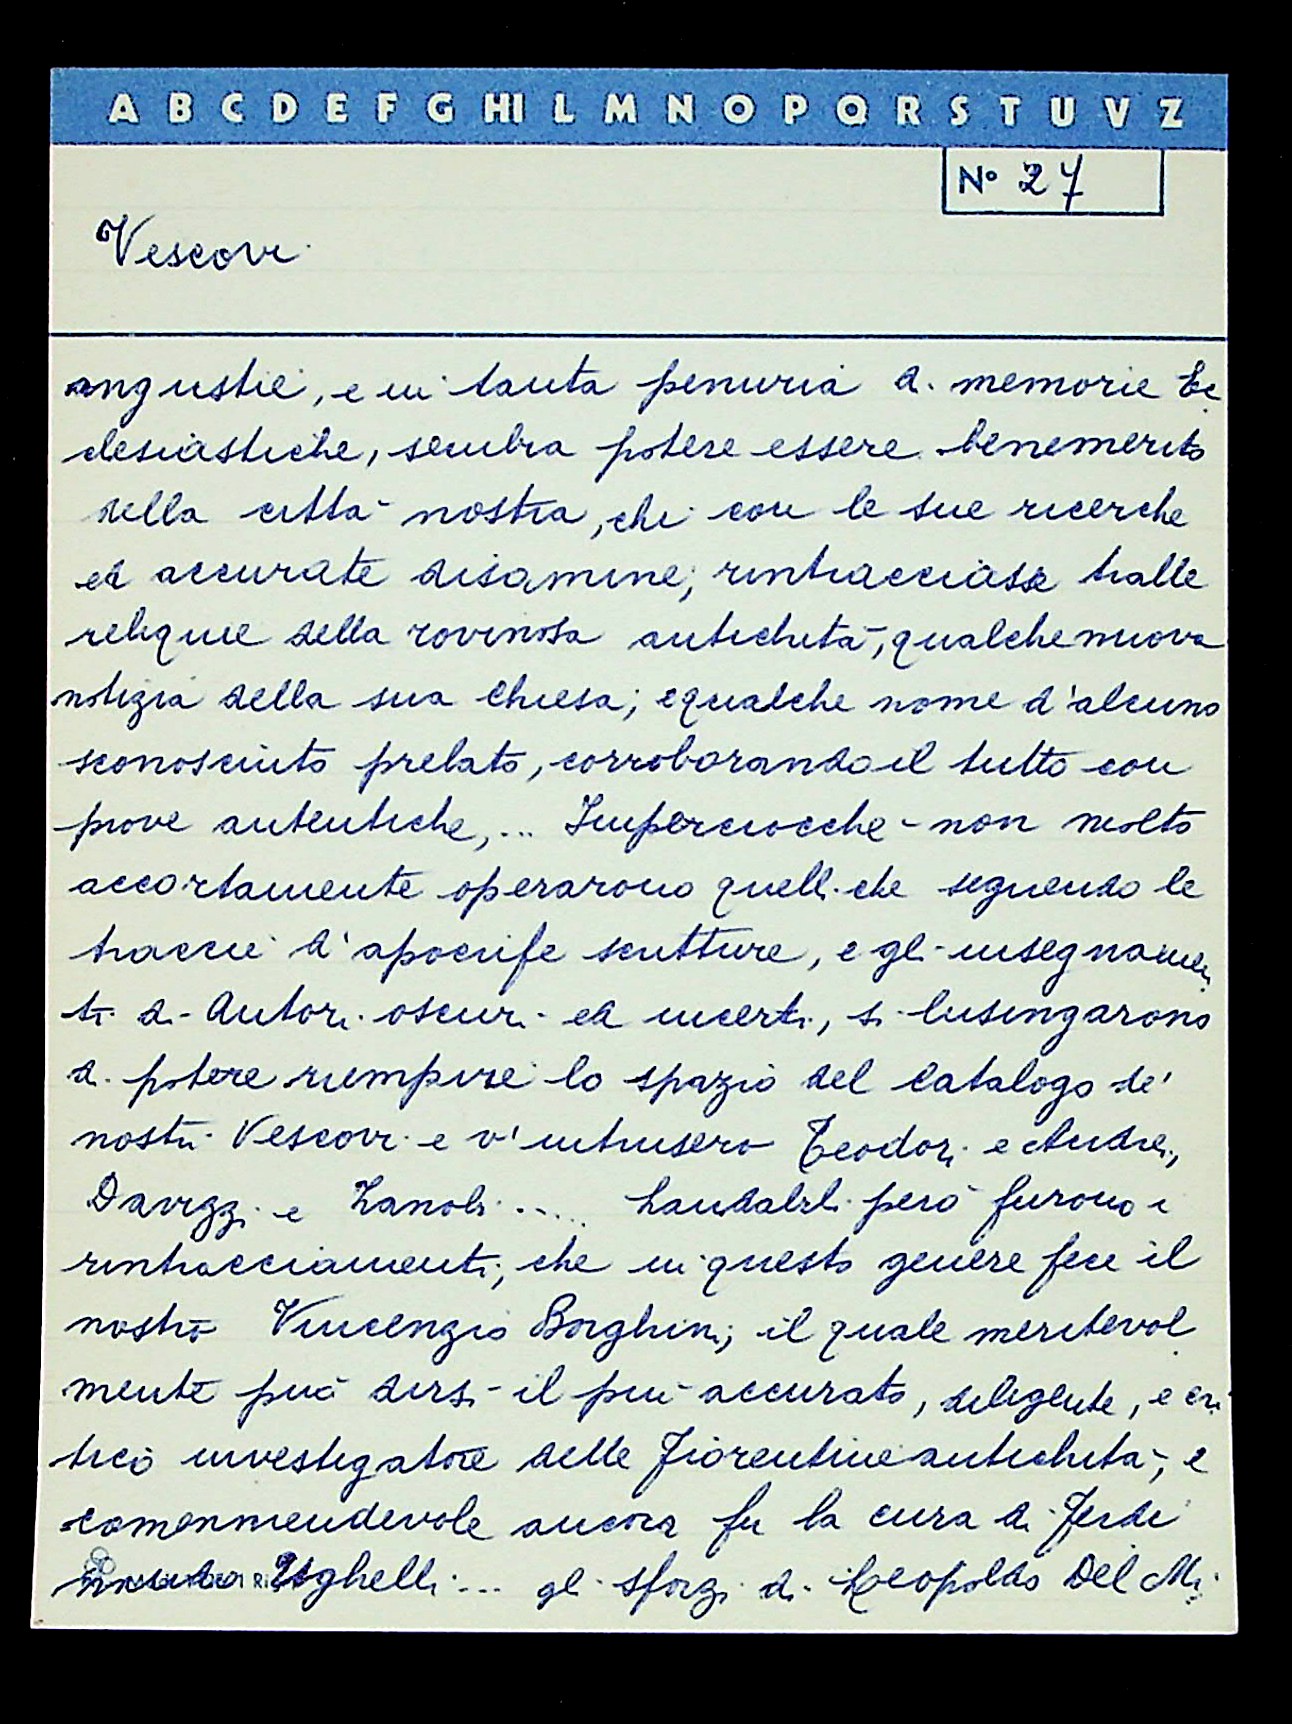 A B C D E F G HI L M N O P Q R S T U V Z
Nº 27
Vescovi
angustie, e in tanta penuria di memorie Ec
clesiastiche, sembra potere essere benemerito
della città nostra, chi con le sue ricerche
ed accurate disamine, rintracciasse tralle
reliquie della rovinosa antichità, qualche nuova
notizia della sua Chiesa; e qualche nome d'alcuno
sconosciuto prelato, corroborando il tutto con
prove autentiche, ... Imperciocchè non molto
accortamente operarono quelli che seguendo le
traccie d'apocrife scritture, e gli insegnamen
ti di Autori oscuri ed incerti, si lusingarono
di potere riempire lo spazio del Catalogo de'
nostri Vescovi e v'intrusero Teodori e Andrei,
Davizzi e Zanobi ..... Laudabili però furono i
rintracciamenti, che in questo genere fece il
nostro Vincenzio Borghini, il quale meritevol
mente può dirsi il più accurato, diligente, e cri
tico investigatore delle Fiorentine antichità, e
commendevole ancora fu la cura di Ferdi
nando Ughelli ... gli sforzi di Leopoldo Del Mi